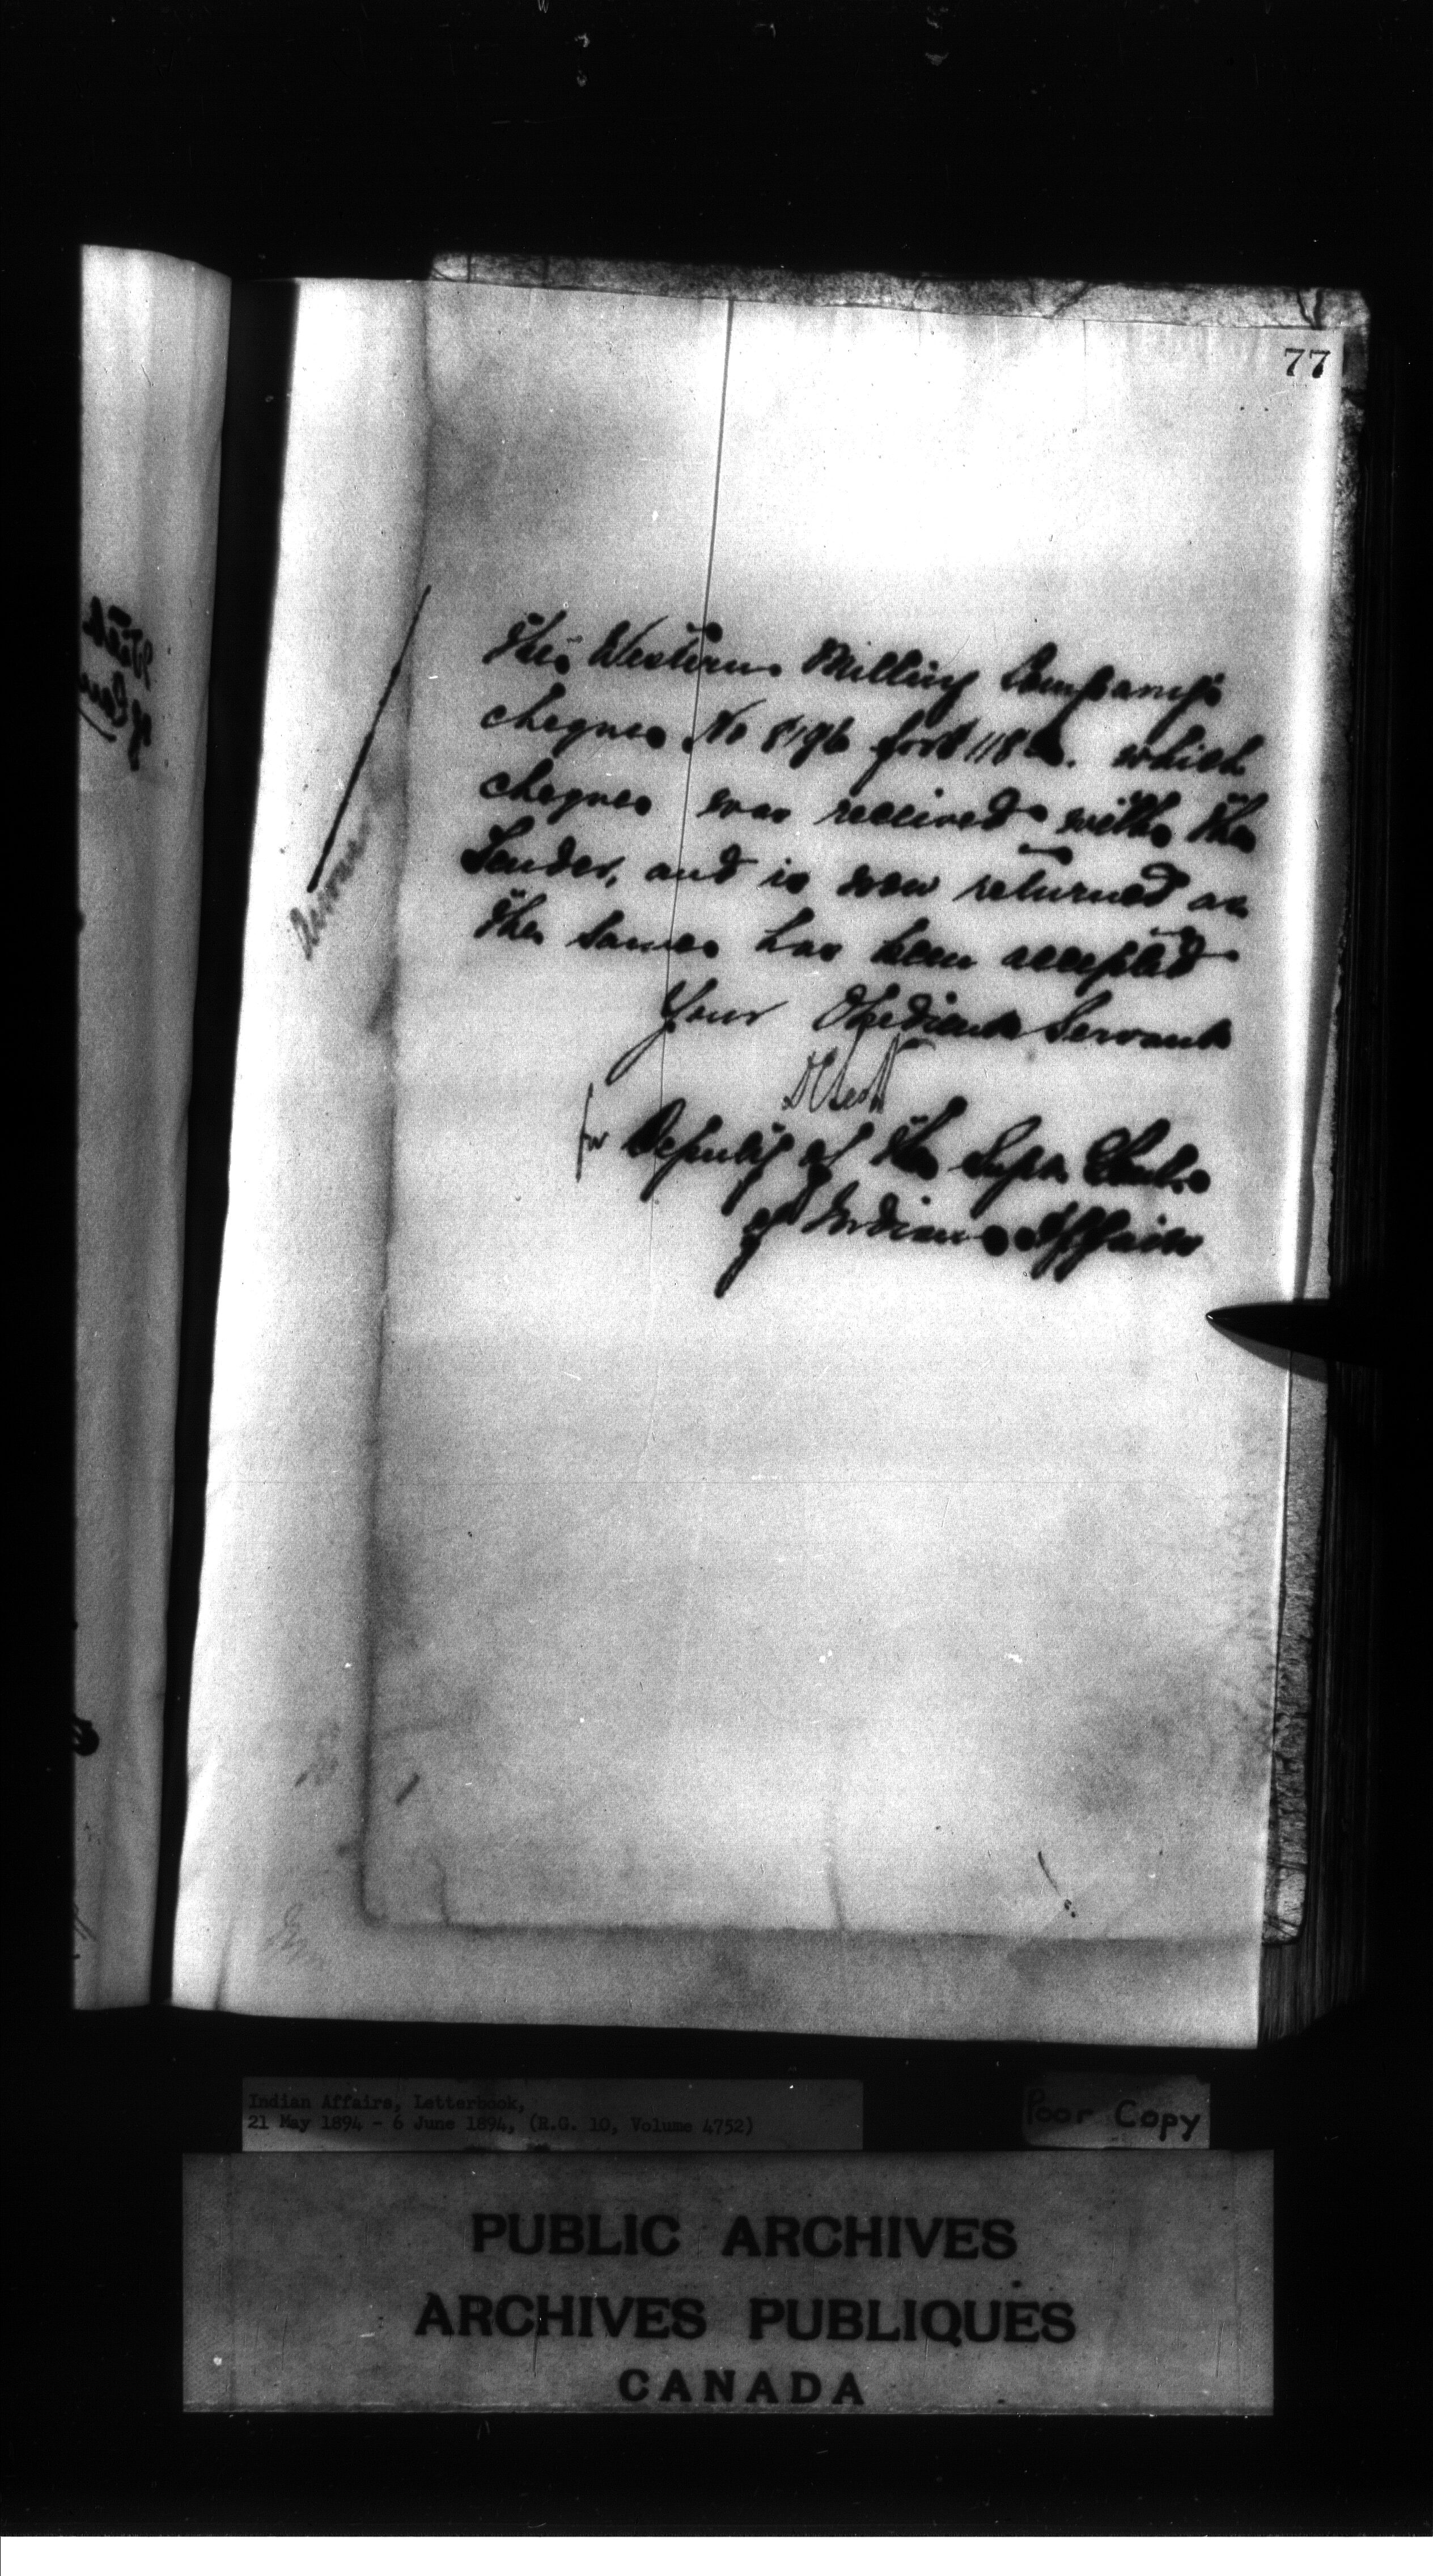 77
The Western Milling Company's
cheque No 8196 for $ 118 . which
cheque was received with the
Tender, and is now returned as
the same has been accepted
Your Obedient Servant
for Deputy of the Supt. Genl.
of Indian Affairs
Indian Affairs, Letterbook,
21 May 1894 - 6 June 1894, (R.G. 10, Volume 4752)
Poor Copy
PUBLIC ARCHIVES
ARCHIVES PUBLIQUES
CANADA